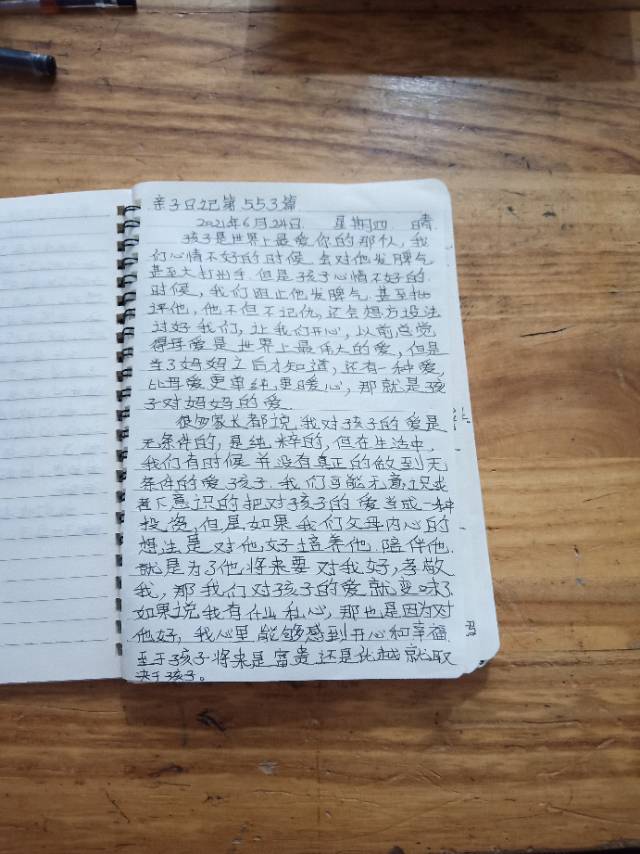 亲子日记第553篇
2021年6月24日 星期四 晴
孩子是世界上最爱你的那伙,我
们心情不好的时候,会对他发脾气
甚至大打出手,但是孩子心情不好的
时候,我们阻止他发脾气,甚至批
评他,他不但不记仇,还会想方设法
讨好我们,让我们开心,以前总觉
得母爱是世界上最伟大的爱,但是
当了妈妈之后才知道,还有一种爱,
比母爱更单纯,更暖心,那就是孩
子对妈妈的爱
很多家长都说,我对孩子的爱是
无条件的,是纯粹的,但在生活中,
我们有时候并没有真正的做到无
条件的爱孩子,我们可能无意识或
者下意识的把对孩子的爱当成一种
投资,但是如果我们父母内心的
想法是对他好,培养他,陪伴他,
就是为了他将来要对我好,孝敬
我,那我们对孩子的爱就变味了
如果说我有什么私心,那也是因为对
他好,我心里能够感到开心和幸福
至于孩子将来是富贵还是优越就取
决于孩子。